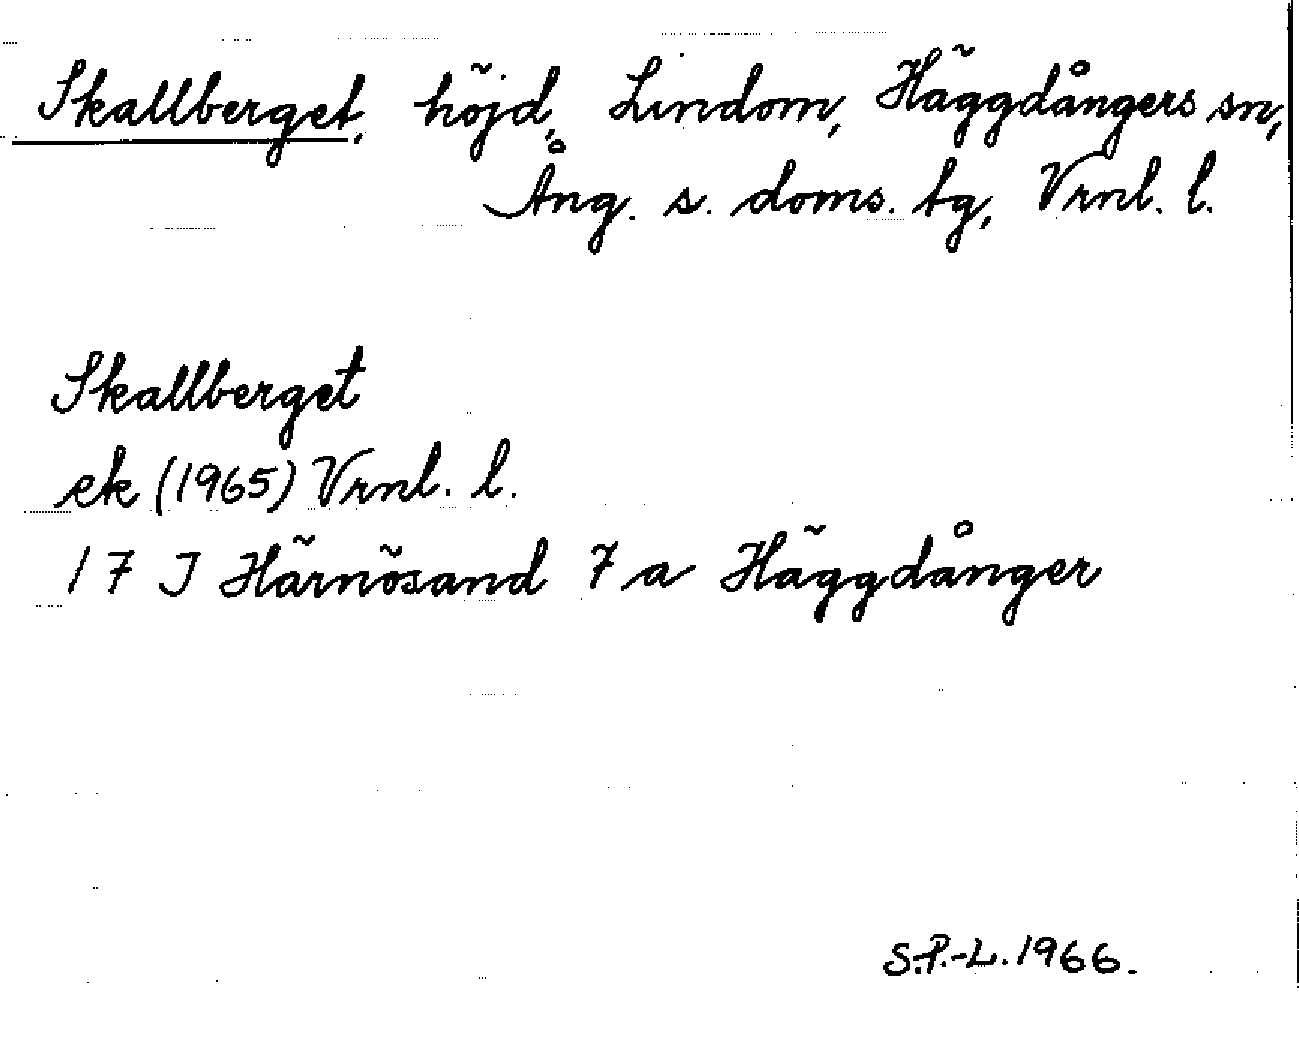 Skallberget, höjd, Lindom, Häggdångers sn,
Ång. s. doms. tg, Vrnl. l.
Skallberget
ek (1965) Vrnl. l.
17 J Härnösand 7 a Häggdånger
S.P.-L. 1966.